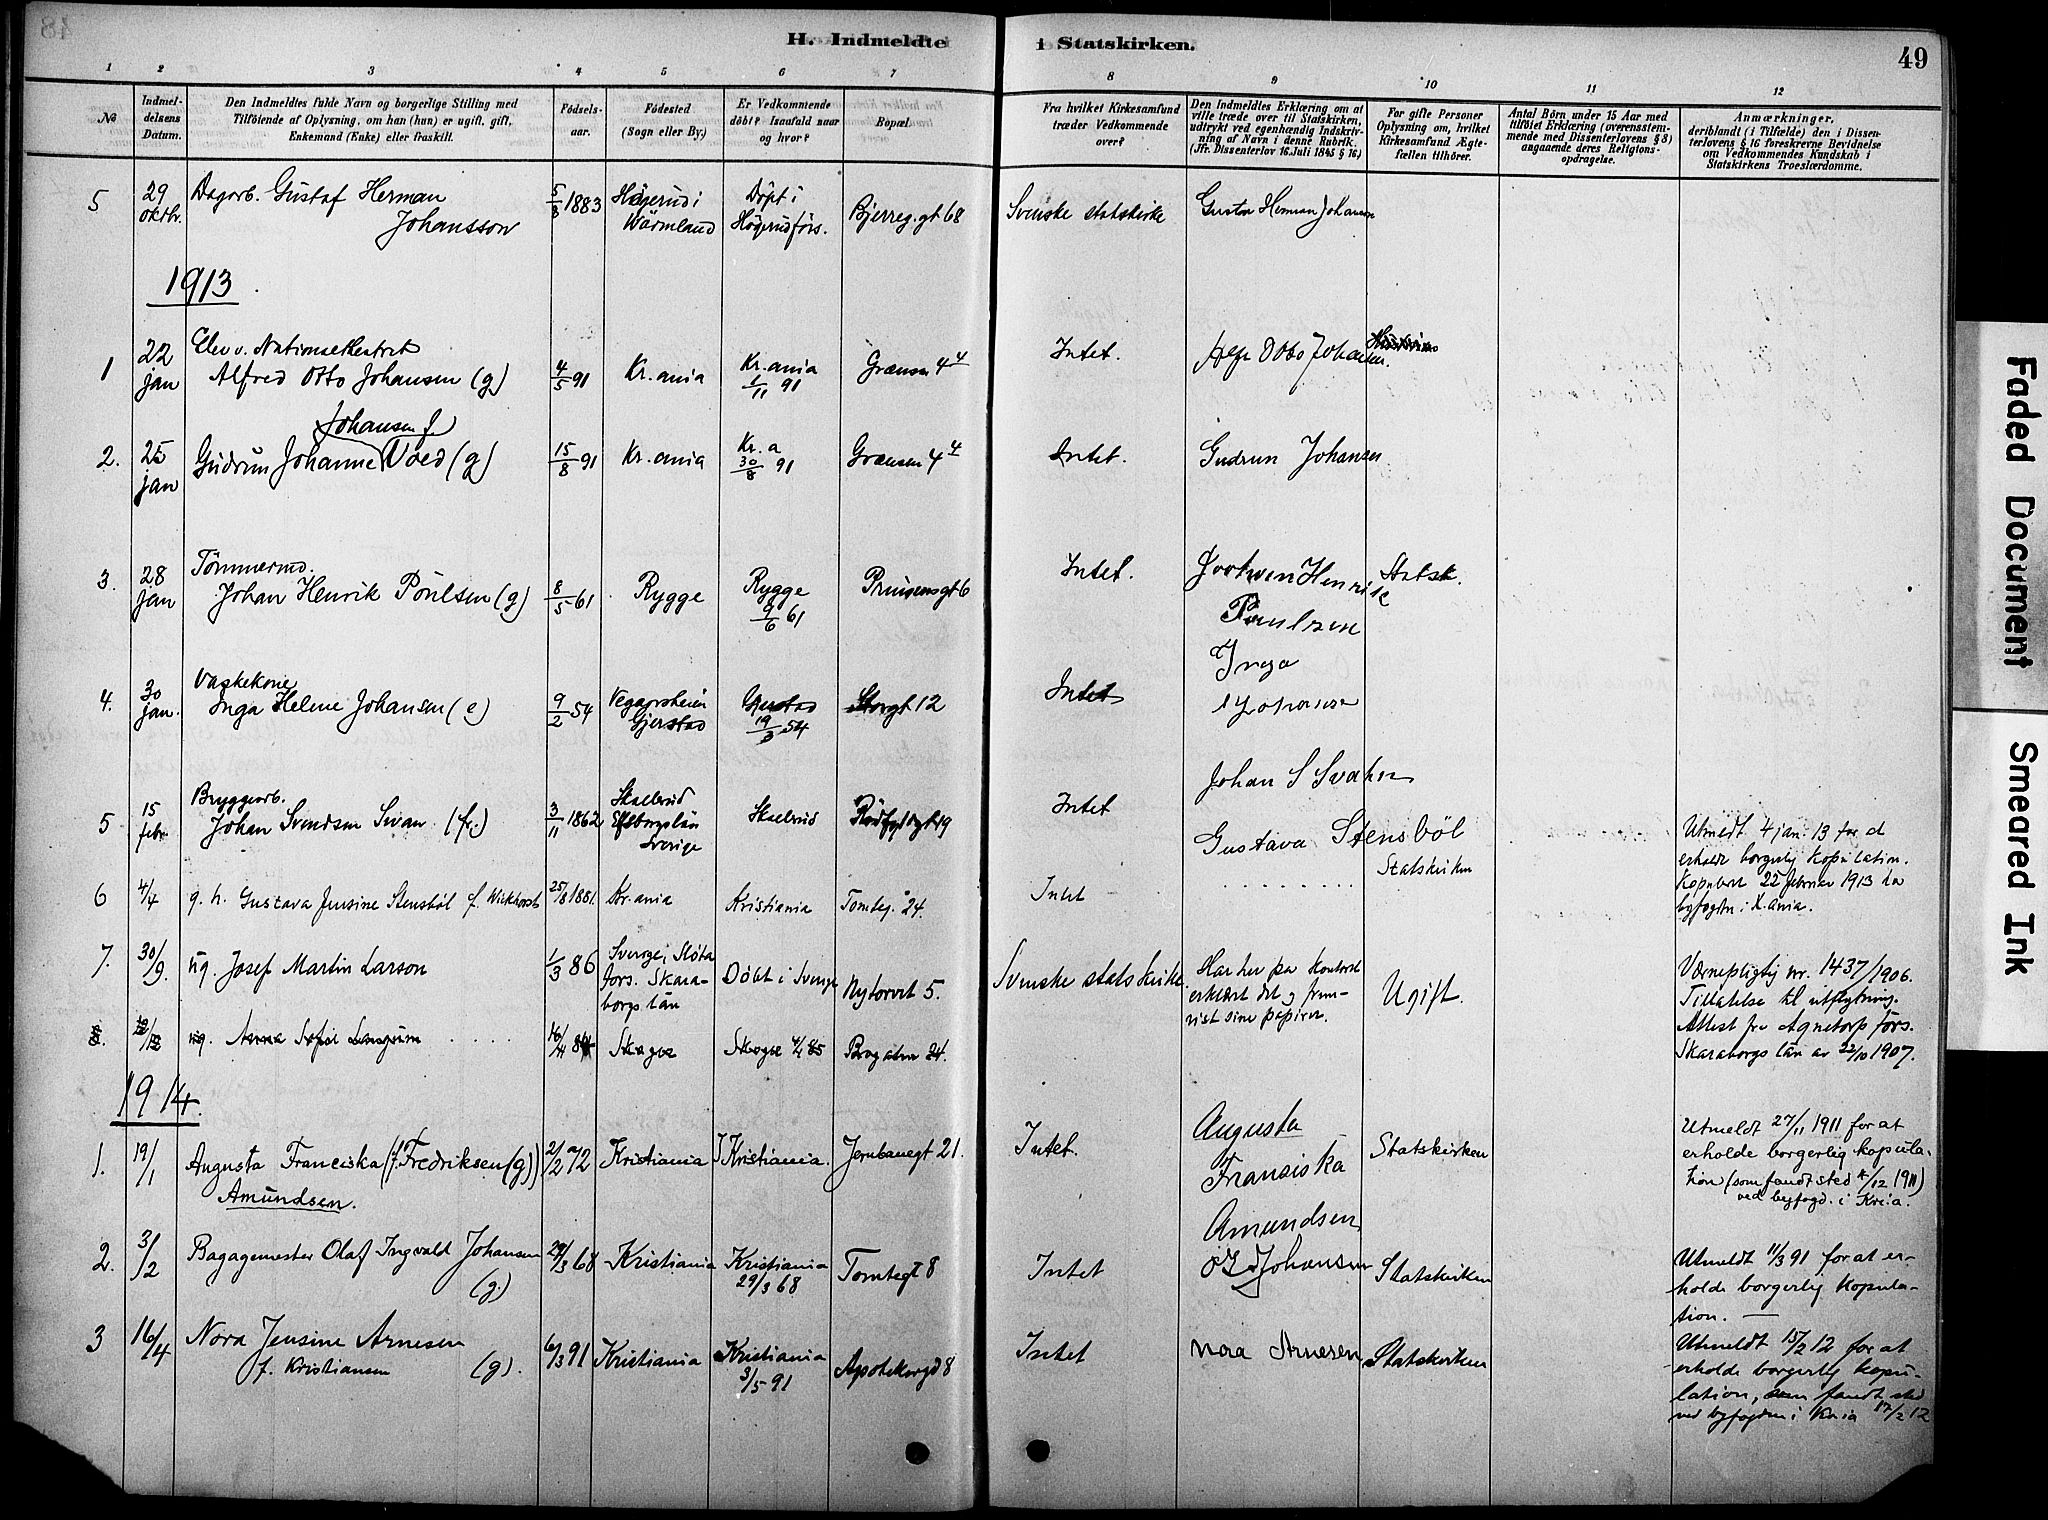 48
H. Indmeldte i Statskirken.
49
1 2 3 4 5 6 7 8 9 10 11 12
No
Indmeldelsens Datum.
Den Indmeldtes fulde Navn og borgerlige Stilling med
Tilföiende af Oplysning, om han (hun) er ugift, gift,
Enkemand (Enke) eller fraskilt.
Födselsaar.
Födested
(Sogn eller By.)
Er Vedkommende
döbt? Isaafald naar
og hvor?
Bopæl.
Fra hvilket Kirkesamfund
træder Vedkommende
over?
Den Indmeldtes Erklæring om at
ville træde over til Statskirken,
udtrykt ved egenhændig Indskriv-
ning af Navn i denne Rubrik.
(Jfr. Dissenterlov 16. Juli 1845 § 16)
For gifte Personer
Oplysning om, hvilket
Kirkesamfund Ægte-
fællen tilhörer.
Antal Börn under 15 Aar med
tilföiet Erklæring (overensstem-
mende med Dissenterlovens § 8)
angaaende deres Religions-
opdragelse.
Anmærkninger,
deriblandt (i Tilfælde) den i Dissen-
terlovens § 16 foreskrevne Bevidnelse
om Vedkommendes Kundskab i
Statskirkens Troeslærdomme.
5 29 oktbr. Dagarb. Gustaf Herman Johansson 5/3 1883 Högerud i Wärmland Döpt i Högerud förs. Bjerreg.gt 68 Svenske statskirke Gustav Herman Johansson
1913
1 22 jan Elev v. Nationaltheatret Alfred Otto Johansen (g) 4/5 91 Kr.ania Kr.ania 1/11 91 Grænsen 4 4 Intet. Otto Johansen.
2. 25 jan Gudrun Johanne Johansen f. Voed (g) 15/8 91 Kr.ania Kr.a 30/8 91 Grænsen 4 4 Intet. Gudrun Johansen
3. 28 jan Tömmermd. Johan Henrik Poulsen (g) 8/5 61 Rygge Rygge 9/6 61 Prinsensgt 6 Intet. Henrik Paulsen Statsk.
4. 30 jan. Vaskekone Inga Helene Johansen (e) 9/2 54 Vegaarsheien Gjerstad Gjerstad 19/3 54 Storgt 12 Intet Inga Johansen
5 15 febr. Bryggearb. Johan Svendsen Svan (fr.) 3/11 1862 Skallerud Elfsborgslän Sverige Skallerud Rödfyldgt 19 Intet Johan S Svahn
6 4/4 g. h. Gustava Jensine Stensböl f. Wickhorst 25/8 1881. Kr.ania Kristiania Tomteg. 24. Intet Gustava Stensböl Statskirken
Utmeldt 4 jan. 13 for at
erholde borgerlig kopulation.
Kopuleret 22 februar 1913 hos
byfogden i K.ania.
7. 30/9. ug. Josef Martin Larson 1/3 86 Sverge, Slöta fors. Skaraborgs län Döbt i Sverge Nytorvet 5. Svenske statskirke. Har her paa kontoret erklært det og fremvist sine papirer. Ugift.
Værnepligtig nr. 1437/1906.
Tillatelse til utflytning.
Attest fra Agnetorp förs.
Skaraborgs län av 22/10 1907.
8. ug. Anna Sofie 16/4 84 Skogse 24.
1914.
1. 19/1 Augusta Franciska (f. Fredriksen (g)) Amundsen. 2/2 72 Kristiania Kristiania. Jernbanegt 21. Intet. Augusta Fransiska Amundsen Statskirken
Utmeldt 27/11 1911 for at
erholde borgerlig kopula-
tion (som fandt sted 4/12 1911)
ved byfogd. i Kria.
2. 3/2 Bagagemester Olaf Ingvald Johansen (g.) 29/3 68 Kristiania Kristiania 29/3 68 Tomtegt 8 Intet O I Johansen Statskirken
Utmeldt 11/3 91 for at er-
holde borgerlig kopula-
tion. —
3 16/4 Nora Jensine Arnesen f. Kristiansen (g). 6/3 91 Kristiania Kristiania 3/5 91 Apotekergd 8 Intet Nora Arnesen Statskirken
Utmeldt 15/2 12 for at
erholde borgerlig kopu-
lation, som fandt sted
ved byfogden i Kria 17/2 12
Faded Document
Smeared Ink